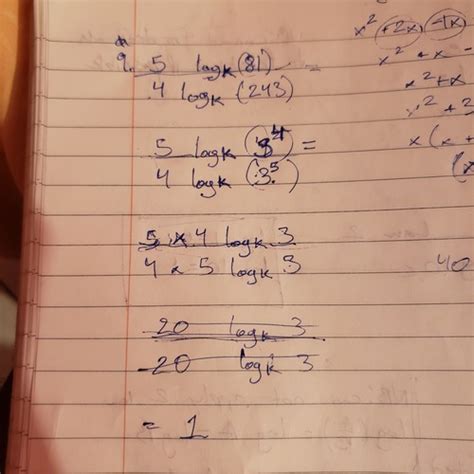 9. 5 logk (81) =
4 logk (243)
5 logk (3^4) =
4 logk (3^5)
5 × 4 logk 3
4 × 5 logk 3
20 logk 3
20 logk 3
= 1
x² +2x -1x
x² + x -
x² + x
x² + 2
x (x +
(x
40